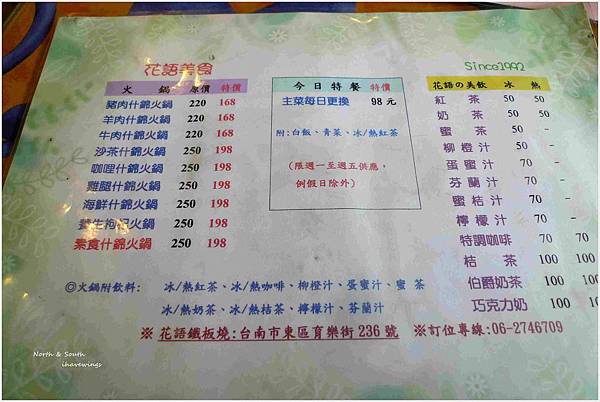 花語美食
火 鍋 原價 特價
豬肉什錦火鍋 220 168
羊肉什錦火鍋 220 168
牛肉什錦火鍋 220 168
沙茶什錦火鍋 250 198
咖哩什錦火鍋 250 198
雞腿什錦火鍋 250 198
海鮮什錦火鍋 250 198
養生枸杞火鍋 250 198
素食什錦火鍋 250 198
今日特餐 特價
主菜每日更換 98 元
附:白飯、青菜、冰/熱紅茶
(限週一至週五供應,
例假日除外)
Since1992
花語の美飲 冰 熱
紅 茶 50 50
奶 茶 50 50
蜜 茶 50 50
柳橙汁 50 -
蛋蜜汁 70 -
芬蘭汁 70 -
蜜桔汁 70 -
檸檬汁 70 -
特調咖啡 70 70
桔 茶 100 100
伯爵奶茶 100 100
巧克力奶 100 100
◎火鍋附飲料: 冰/熱紅茶、冰/熱咖啡、柳橙汁、蛋蜜汁、蜜 茶
冰/熱奶茶、冰/熱桔茶、檸檬汁、芬蘭汁
※ 花語鐵板燒:台南市東區育樂街 236 號 ※訂位專線:06-2746709
North & South
ihavewings